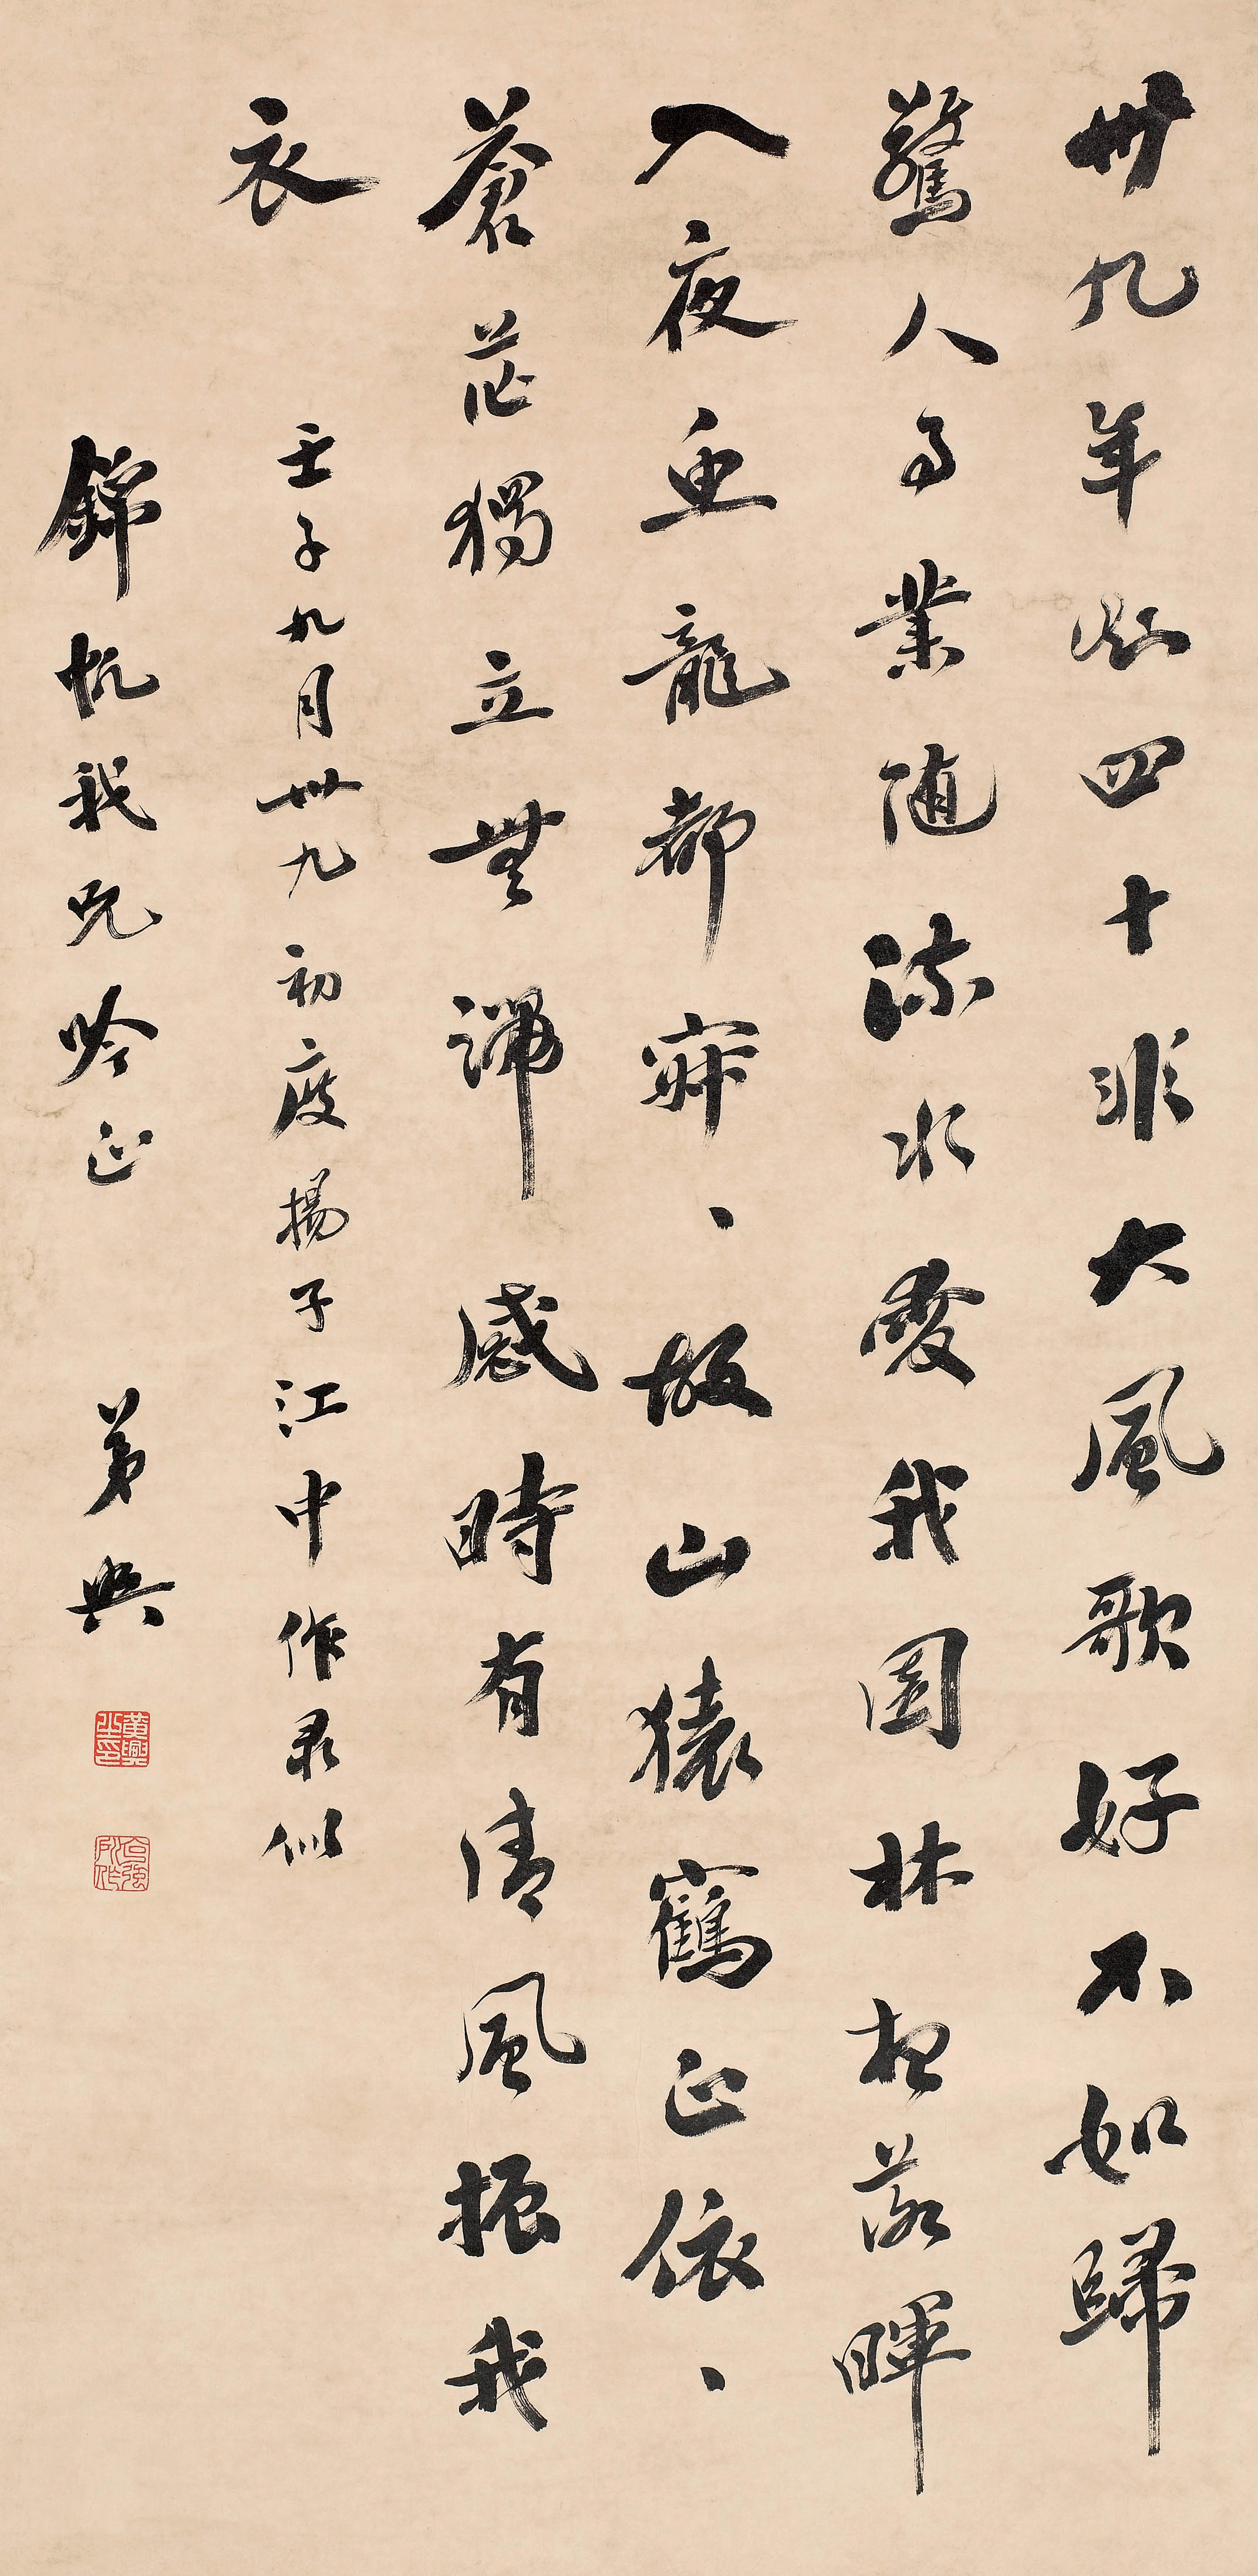 卅九年知四十非大風歌好不如歸
驚人事業隨流水愛我園林想落暉
入夜魚龍都寂、故山猿鶴正依、
蒼茫獨立無端感時有清風振我
衣
壬子九月卅九初度揚子江中作录似
錦帆我兄吟正 弟興
黃興之印